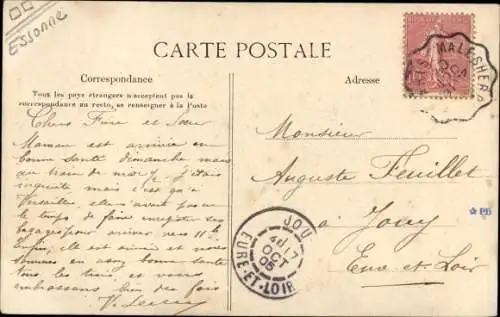 Essonne
CARTE POSTALE
Correspondance
Tous les pays étrangers n'acceptent pas la
correspondance au recto, se renseigner à la Poste
Adresse
Chers Frère et Sœur
Maman est arrivée en
bonne santé dimanche mais
au train de J'étais
inquiète mais c'est qu'à
Versailles, elle avait pas eu
le temps de faire enregistrer ses
bagages pour arriver vers 11h
Enfin, elle est arrivée et nous
sommes en assez bonne santé
tous les trois et vous
embrassons bien des fois
V.
Monsieur
Auguste Feuillet
à Jouy
Eure et Loir
MALESHERB
OCT
JOU
17
OCT
05
EURE-ET-LOIR